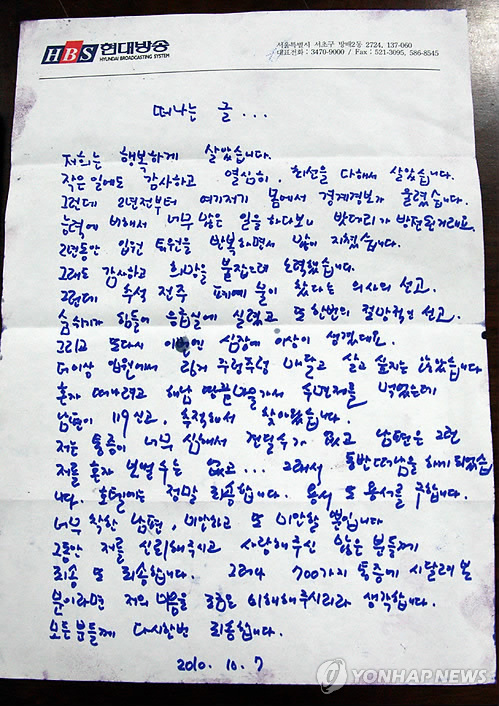 HBS 현대방송
HYUNDAI BROADCASTING SYSTEM
서울특별시 서초구 방배2동 2724, 137-060
대표전화 : 3470-9000 / Fax : 521-3095, 586-8545
떠나는 글...
저희는 행복하게 살았습니다.
작은 일에도 감사하고 열심히, 최선을 다해서 살았습니다.
그런데 2년전부터 여기저기 몸에서 경계경보가 울렸습니다.
능력에 비해서 너무 많은 일을 하다보니 밧데리가 방전된거래요.
2년동안 입원 퇴원을 반복하면서 많이 지쳤습니다.
그래도 감사하고 희망을 붙잡으려 노력했습니다.
그런데 추석 전주 폐에 물이 찼다는 의사의 선고.
숨쉬기가 힘들어 응급실에 실렸고 또 한번의 절망적인 선고.
그리고 또다시 이번엔 심장에 이상이 생겼데요.
더이상 입원해서 링거 주렁주렁 매달고 살고 싶지는 않았습니다
혼자 떠나려고 해남 땅끝마을가서 수면제를 먹었는데
남편이 119신고, 추적해서 찾아왔습니다.
저는 통증이 너무 심해서 견딜수가 없고 남편은 그런
저를 혼자 보낼수는 없고... 그래서 동반떠남을 하게 되었습
니다. 호텔에는 정말 죄송합니다. 용서 또 용서를 구합니다.
너무 착한 남편, 미안하고 또 미안할 뿐입니다
그동안 저를 신뢰해주시고 사랑해주신 많은 분들께
죄송 또 죄송합니다. 그러나 700가지 통증에 시달려 본
분이라면 저의 마음을 조금은 이해해주시리라 생각합니다.
모든분들께 다시한번 죄송합니다.
2010. 10. 7
YONHAPNEWS